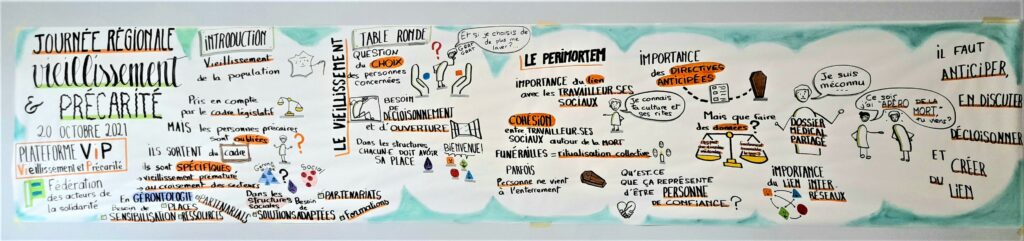 JOURNÉE RÉGIONALE
vieillissement
& PRÉCARITÉ
20 OCTOBRE 2021
PLATEFORME ViP
Vieillissement et Précarité
Fédération
des acteurs de
la solidarité
iNTRODUCTION
Vieillissement
de la population
Pris en compte
par le cadre législatif
MAIS les personnes précaires
sont oubliées
iLS SORTENT du cadre
ils sont SPÉCIFIQUES
vieillissement prématuré
au croisement des secteurs
En GÉRONTOLOGIE
Besoin de
PLACES
PARTENARIATS
SENSIBILISATION
RESSOURCES
Dans les
structures
sociales
Besoin
de
PARTENARIATS
SOLUTIONS ADAPTÉES
Formations
LE VIEILLISSEMENT
TABLE RONDE
QUESTION
du CHOIX
des personnes
concernées
Et si je choisis de
de plus me
laver?
BESOIN
DE
DÉCLOISONNEMENT
et d'OUVERTURE
Dans les structures,
CHACUN·E DOIT AVOIR
SA PLACE
BIENVENUE!
LE PERIMORTEM
IMPORTANCE du lien
avec les TRAVAILLEUR·SES
SOCIAUX
COHÉSION
entre TRAVAILLEUR·SES
SOCIAUX autour de la MORT
FUNÉRAILLES = ritualisation collective
PARFOIS
Personne ne vient
à l'enterrement
je connais
ta culture et
ses rites
IMPORTANCE
des DIRECTIVES
ANTICIPÉES
Mais que faire
des données?
QU'EST-CE
QUE ÇA REPRÉSENTE
D'ÊTRE PERSONNE
DE CONFIANCE?
Je suis
méconnu
DOSSIER
MEDICAL
PARTAGÉ
IMPORTANCE
du LIEN INTER-
RÉSEAUX
Ce soir
j'ai "APÉRO DE LA
MORT",
tu viens?
iL FAUT
ANTiCiPER,
EN DISCUTER
DÉCLOISONNER
ET
CRÉER
DU LiEN